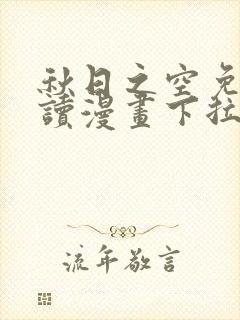 秋日之空免
讀漫畫下拉
流年敬言